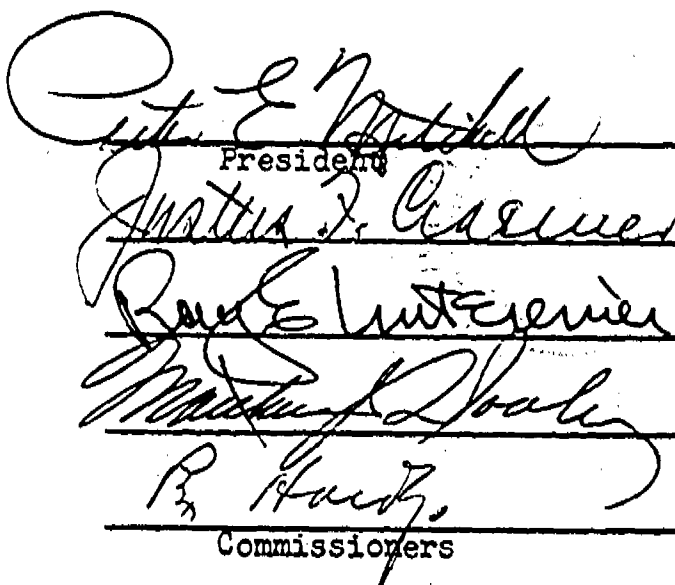 Peter E. Mitchell
President
Justus F. Craemer
Ray E. Untereiner
Matthew J. Dooley
Rex Hardy.
Commissioners